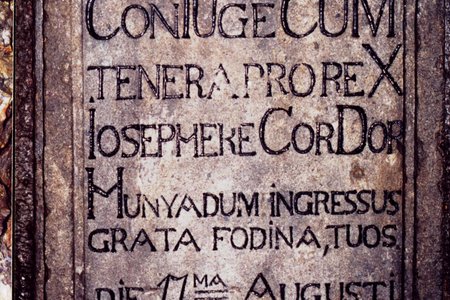 CONIUGE CUM
TENERA PROREX
IOSEPHEKE CORDOR
MUNYADUM INGRESSUS
GRATA FODINA, TUOS
DIE 17MA AUGUSTI